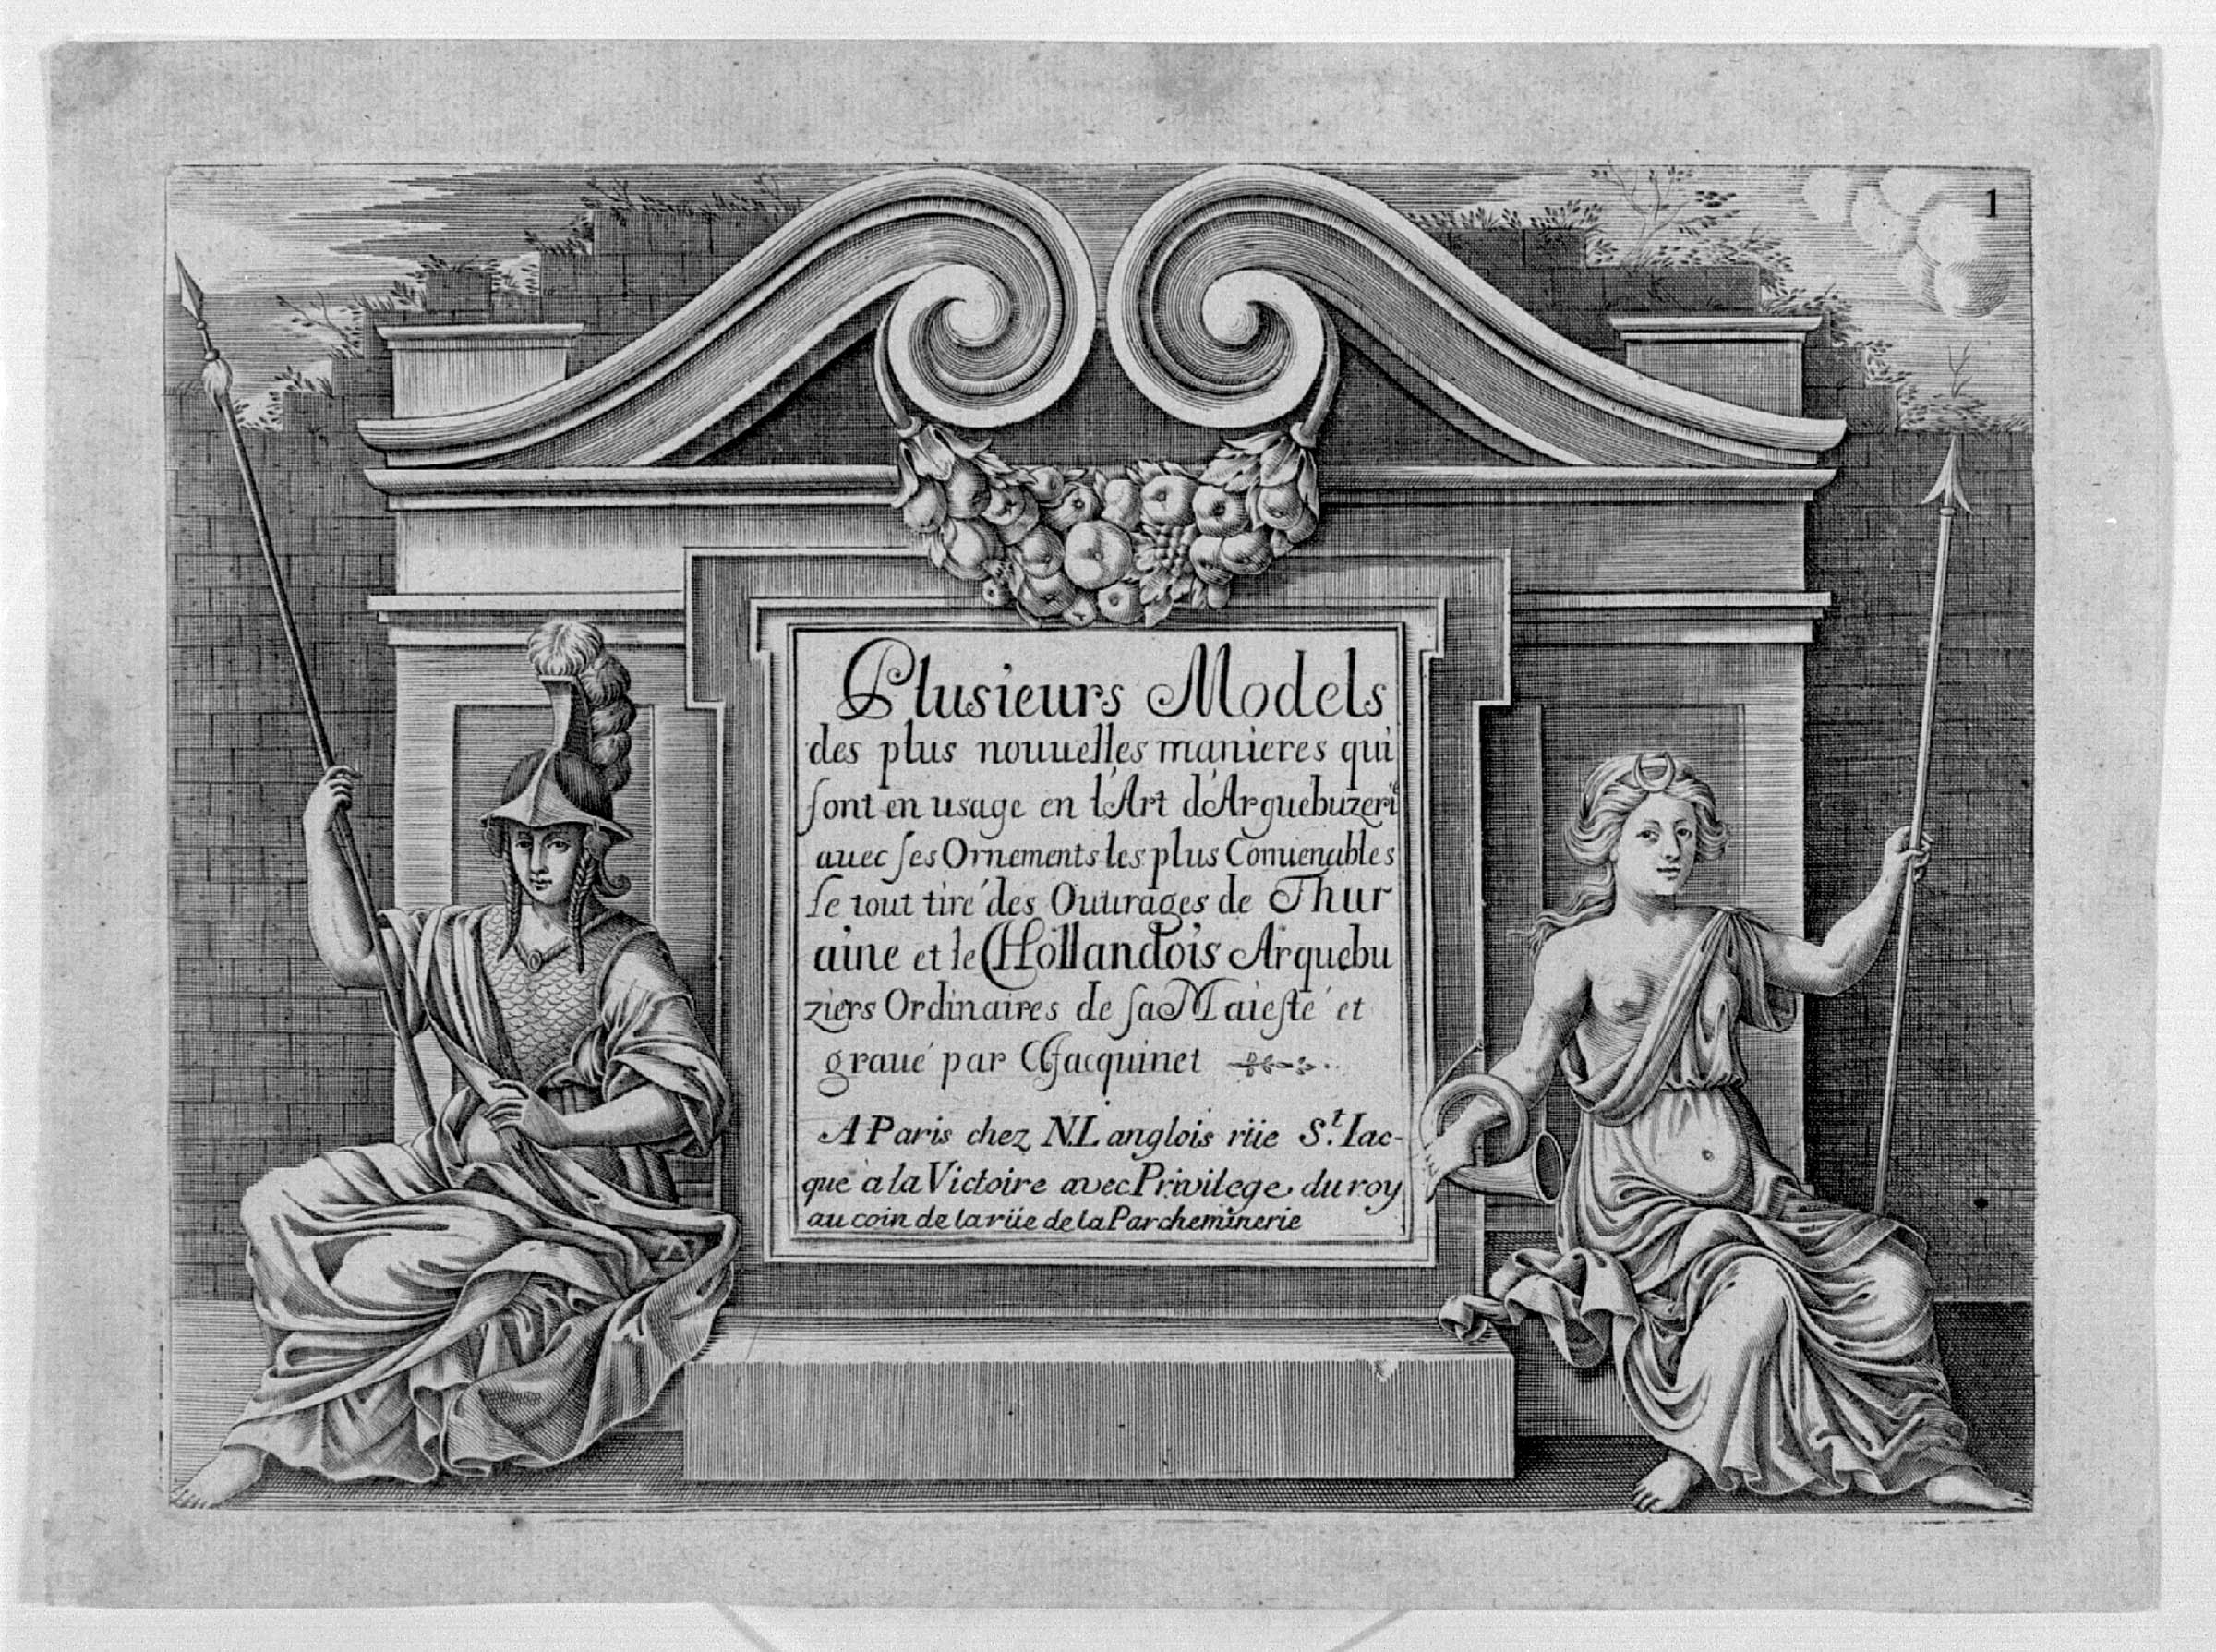 1
Plusieurs Models
des plus nouuelles manieres qui
sont en usage en l'Art d'Arquebuzerie
auec ses Ornements les plus Conuienables
le tout tiré des Ouurages de Thur
aine et le Hollandois Arquebu
ziers Ordinaires de sa Maiesté et
graué par C Jacquinet
A Paris chez N. Langlois rüe St. Iac-
que à la Victoire avec Privilege du roy
au coin de la rüe de la Parcheminerie